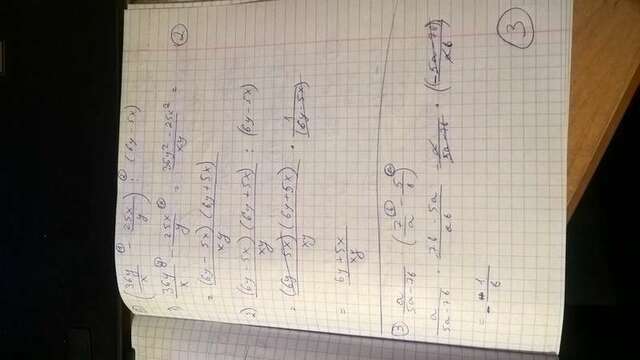 (36y/x - 25x/y) : (6y - 5x)
1) 36y/x - 25x/y = 36y² - 25x²/xy =
2
= (6y - 5x)(6y + 5x)/xy
2) (6y - 5x)(6y + 5x)/xy : (6y - 5x)
= (6y - 5x)(6y + 5x)/xy · 1/(6y - 5x)
= 6y + 5x/xy
3 a/5a - 7b (7/a - 5/b)
a/5a - 7b · 7b - 5a/ab = a/5a - 7b · (-5a - 7b/ab)
= - 1/b
3